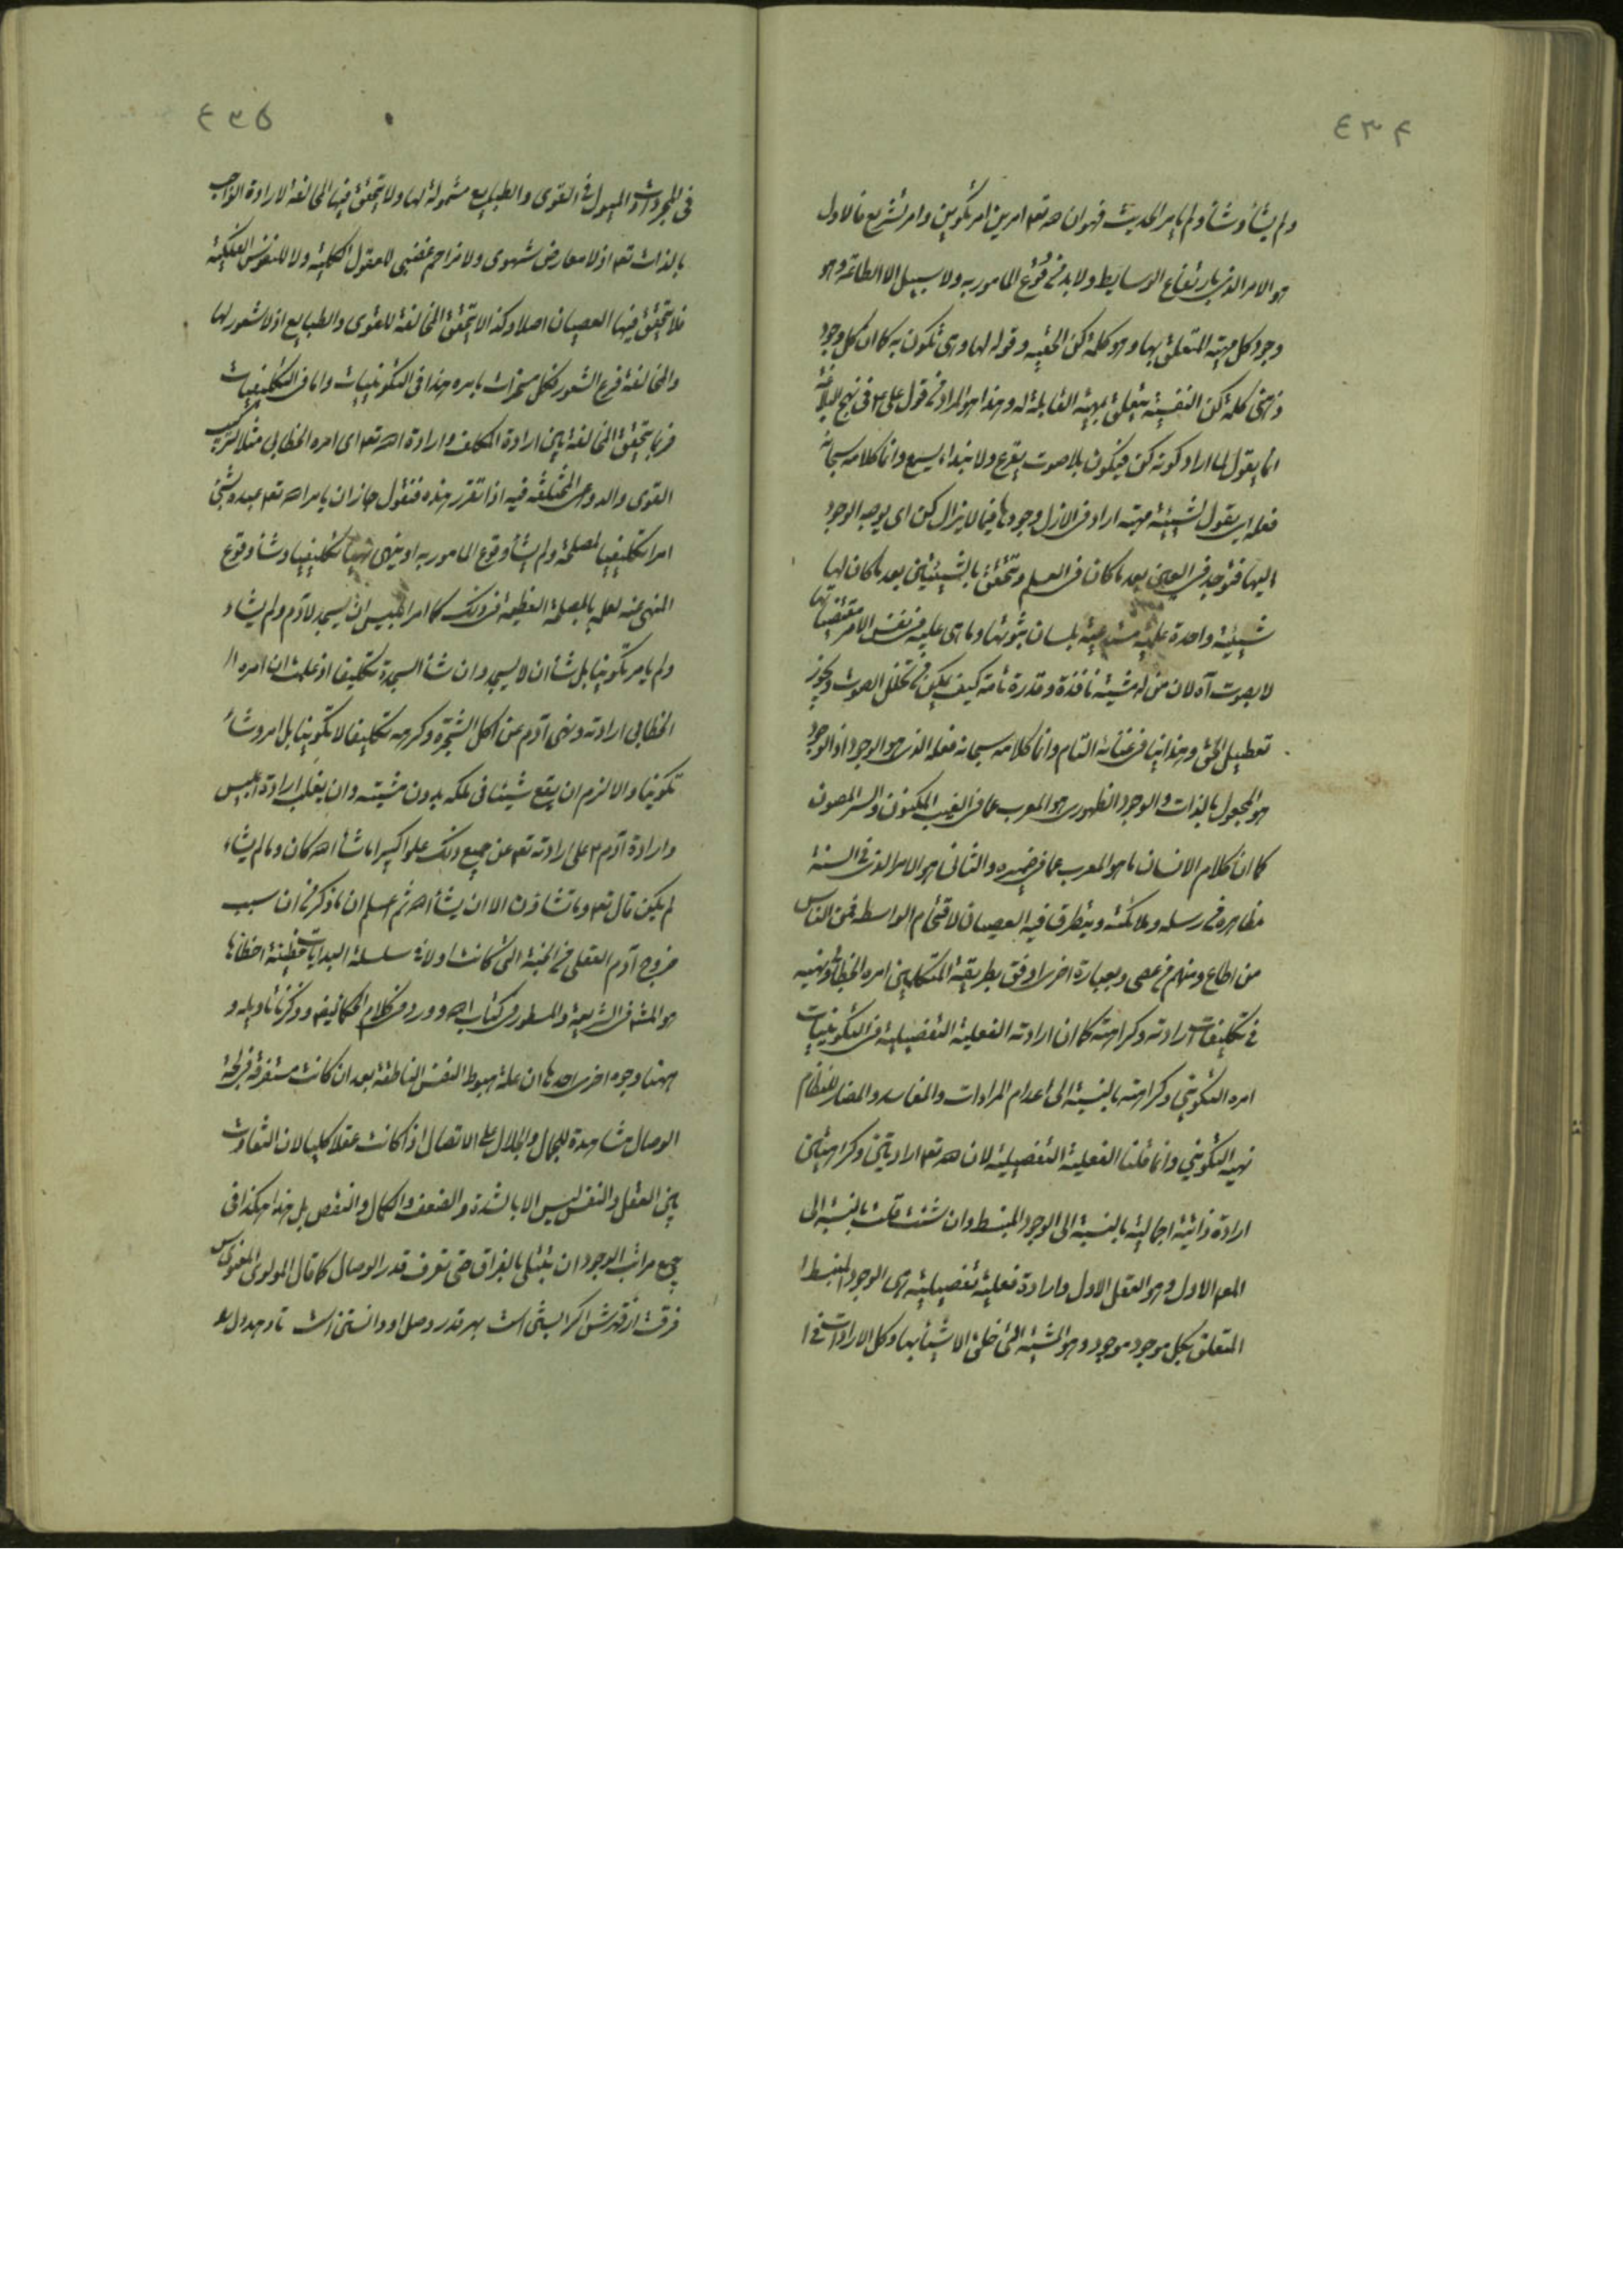 ٤٣٤
ولم يشأ وشأ ولم يأمر الحديث فهو ان لله تعه امرين امر تكوين وامر تشريع فالاول
هو الامر الذى بارتفاع الوسايط ولا بد فى وقوع المامور به ولا سبيل الا الطاعة وهو
وجود كل مهية المتعلق بها وهو كلمة كن وقوله لها وهى تكون به كما ان كل وجود
ذهنى كلمة كن النفسية يتعلق بمهية القابلة له وهذا هو المراد فى قول على ع فى نهج البلاغة
انما يقول لما اراد كونه كن فيكون بلا صوت يقرع ولا بنداء يسمع وانما كلامه سبحانه
فعله اى يقول لشيئية مهية اراد فى الازل وجودها فيما لا يزال كن اى يوجه الوجود
اليها فتوجد فى العين بعد ما كان فى العلم وتتحقق بالشيئيتين بعد ما كان لها
شيئية واحدة علمية بلسان ثبوتها وما هى عليه فى نفس الامر مقتضياتها
لا بصوت آه لان من له مشية نافذة وقدرة تامة كيف يكون فى تخلل الصوت وتجوز
تعطيل الحق وهذا ايضا فى غنائه التام وانما كلامه سبحانه فعله الذى هو الوجود اذ الوجود
هو المجعول بالذات والوجود الظهورى هو المعرب عما فى الغيب المكنون والسر المصون
كما ان كلام الانسان ما هو المعرب عما فى ضميره والثانى هو الامر الذى فى السنة
مظاهره فى رسله وملائكته ويتطرق فيه العصيان لاقتحام الواسطة فمن الناس
من اطاع ومنهم من عصى وبعبارة اخرى اوفق بطريقة المتكلمين امره الخطابى ونهيه
فى تكليفات ارادته وكراهته كما ان ارادته الفعلية التفصيلية فى التكوينيات
امره التكوينى وكراهته بالنسبة الى اعدام المرادات والمفاسد والمضار للنظام
نهيه التكوينى وانما قلنا الفعلية التفصيلية لان لله تعه ارادتين وكراهتين
ارادة ذاتية اجمالية بالنسبة الى الوجود المنبسط وان شئت قلت بالنسبة الى
المعه الاول وهو العقل الاول وارادة فعلية تفصيلية هى الوجود المنبسط
المتعلق بكل موجود موجود وهو المشية التى خلق الاشيأ بها وكل الارادات فى
٤٣٥
فى المجردات والميول فى القوى والطبايع مشمولة لها ولا يتحقق فيها المخالفة لارادة الواجب
بالذات تعه اذ لا معارض شهوى ولا مزاحم غضبى للعقول الكلية ولا للنفوس الفلكية
فلا يتحقق فيها العصيان اصلا وكذا لا يتحقق المخالفة للقوى والطبايع اذ لا شعور لها
والمخالفة فرع الشعور فكل مسخرات بامره هذا فى التكوينيات واما فى التكليفيات
فربما يتحقق المخالفة بين ارادة المكلف وارادة الله تعه اى امره الخطابى مثلا لتركيب
القوى والدواعى المختلفة فيه اذا تقرر هذه فنقول جاز ان يامر الله تعه عبده بشئ
امرا تكليفيا لمصلحة ولم يشأ وقوع المامور به او ينهى نهيا تكليفيا وشأ وقوع
المنهى عنه لعلمه بالمصلحة العظيمة فى ذلك كما امر ابليس ان يسجد لآدم ولم يشاء
ولم يامر تكوينا بل شأ ان لا يسجد وان شأ السجدة تكليفا اذ علمت ان امره
الخطابى ارادته ونهى آدم عن اكل الشجرة وكرهه تكليفا لا تكوينا بل امر وشأ
تكوينا والا لزم ان يقع شيئا فى ملكه بدون مشيته وان يغلب ارادة ابليس
وارادة آدم ع على ارادته تعه عن جميع ذلك علوا كبيرا ما شأ الله كان وما لم يشاء
لم يكن قال تعه وما تشاؤن الا ان يشأ الله ثم اعلم ان ما ذكر فى ان سبب
خروج آدم العقلى من الجنة التى كانت اولا فى سلسلة البدايات خطيئة اخطاها
هو المشه فى الشريعة والمسطور فى كتاب الله وورد فى كلام الحكما ايضا وذكرنا تاويله و
ههنا وجوه اخرى احدها ان علة هبوط النفس الناطقة بعد ان كانت مستغرقة فى لجة
الوصال مشاهدة للجمال والجلال على الاتصال اذا كانت عقلا كليا لان التفاوت
بين العقل والنفس ليس الا بالشدة والضعف والكمال والنقص بل هذا هكذا فى
جميع مراتب الوجود ان يبتلى بالفراق حتى تعرف قدر الوصال كما قال المولوى المعنوى س
فرقت از قهرش اكر آبستن است بهر قدر وصل او دانستن است تا دهد دل